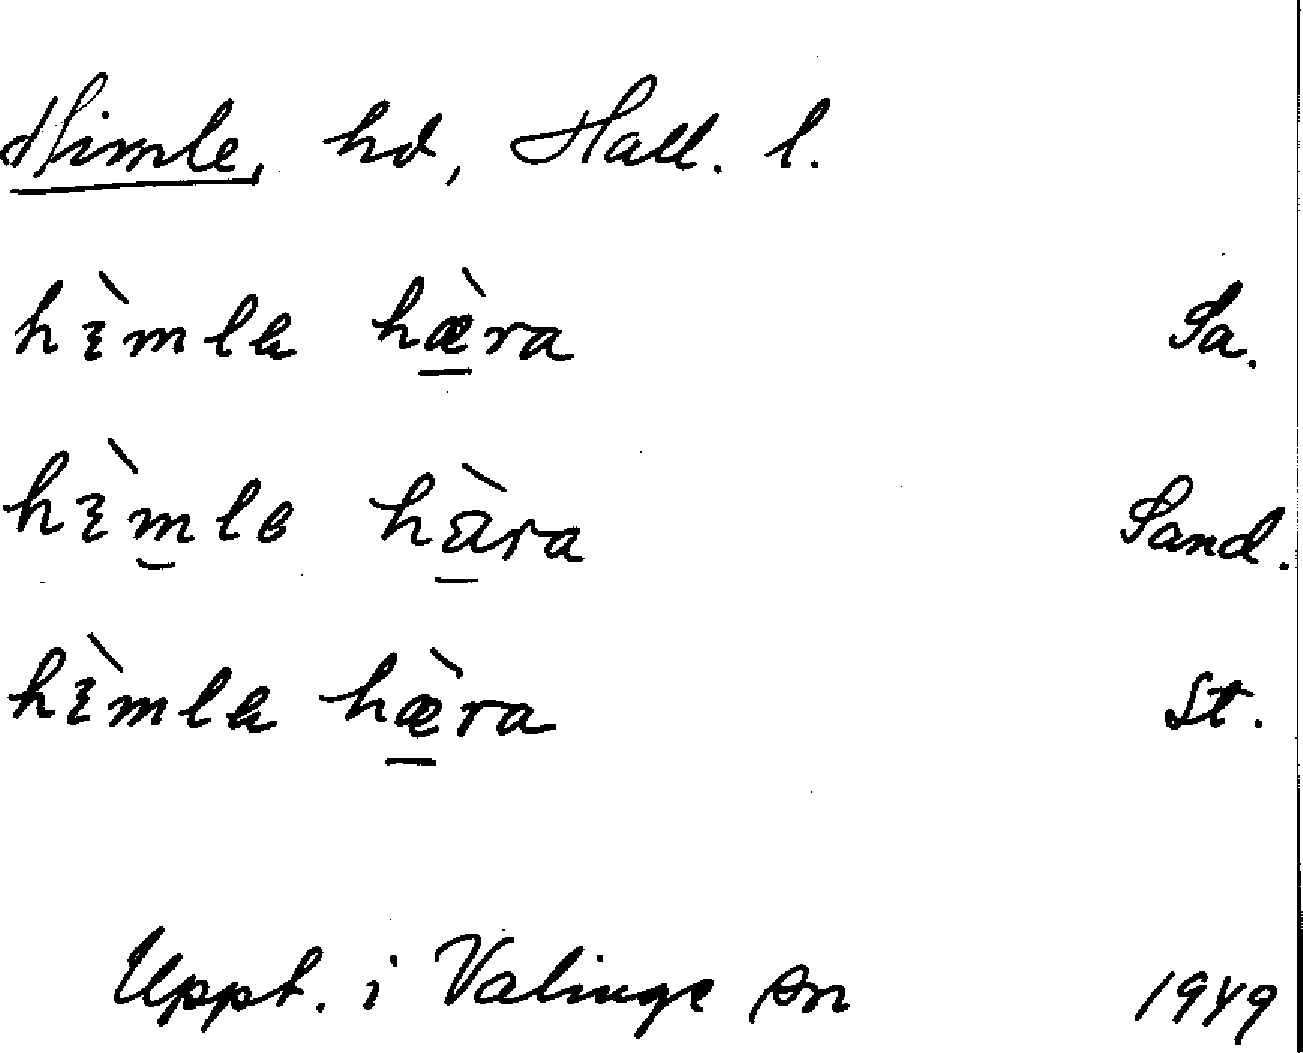 Himle, hd, Hall. l.
hìmla hæ̠̀ra Sa.
hìm̮lɵ hä̠̀ra Sand.
hìmla hæ̠̀ra St.
Uppt. i Valinge sn 1949